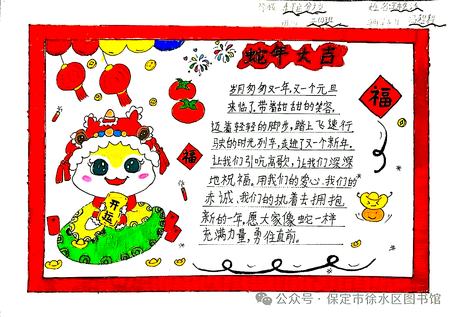 蛇年大吉
岁月匆匆又一年,又一个元旦
来临了,带着甜甜的笑容,
迈着轻轻的脚步,踏上飞速行
驶的时光列车,走进了又一个新年。
让我们引吭高歌,让我们深深
地祝福。用我们的爱心、我们的
赤诚、我们的执着去拥抱
新的一年,愿大家像蛇一样
充满力量,勇往直前。
福
福
开运
公众号·保定市徐水区图书馆